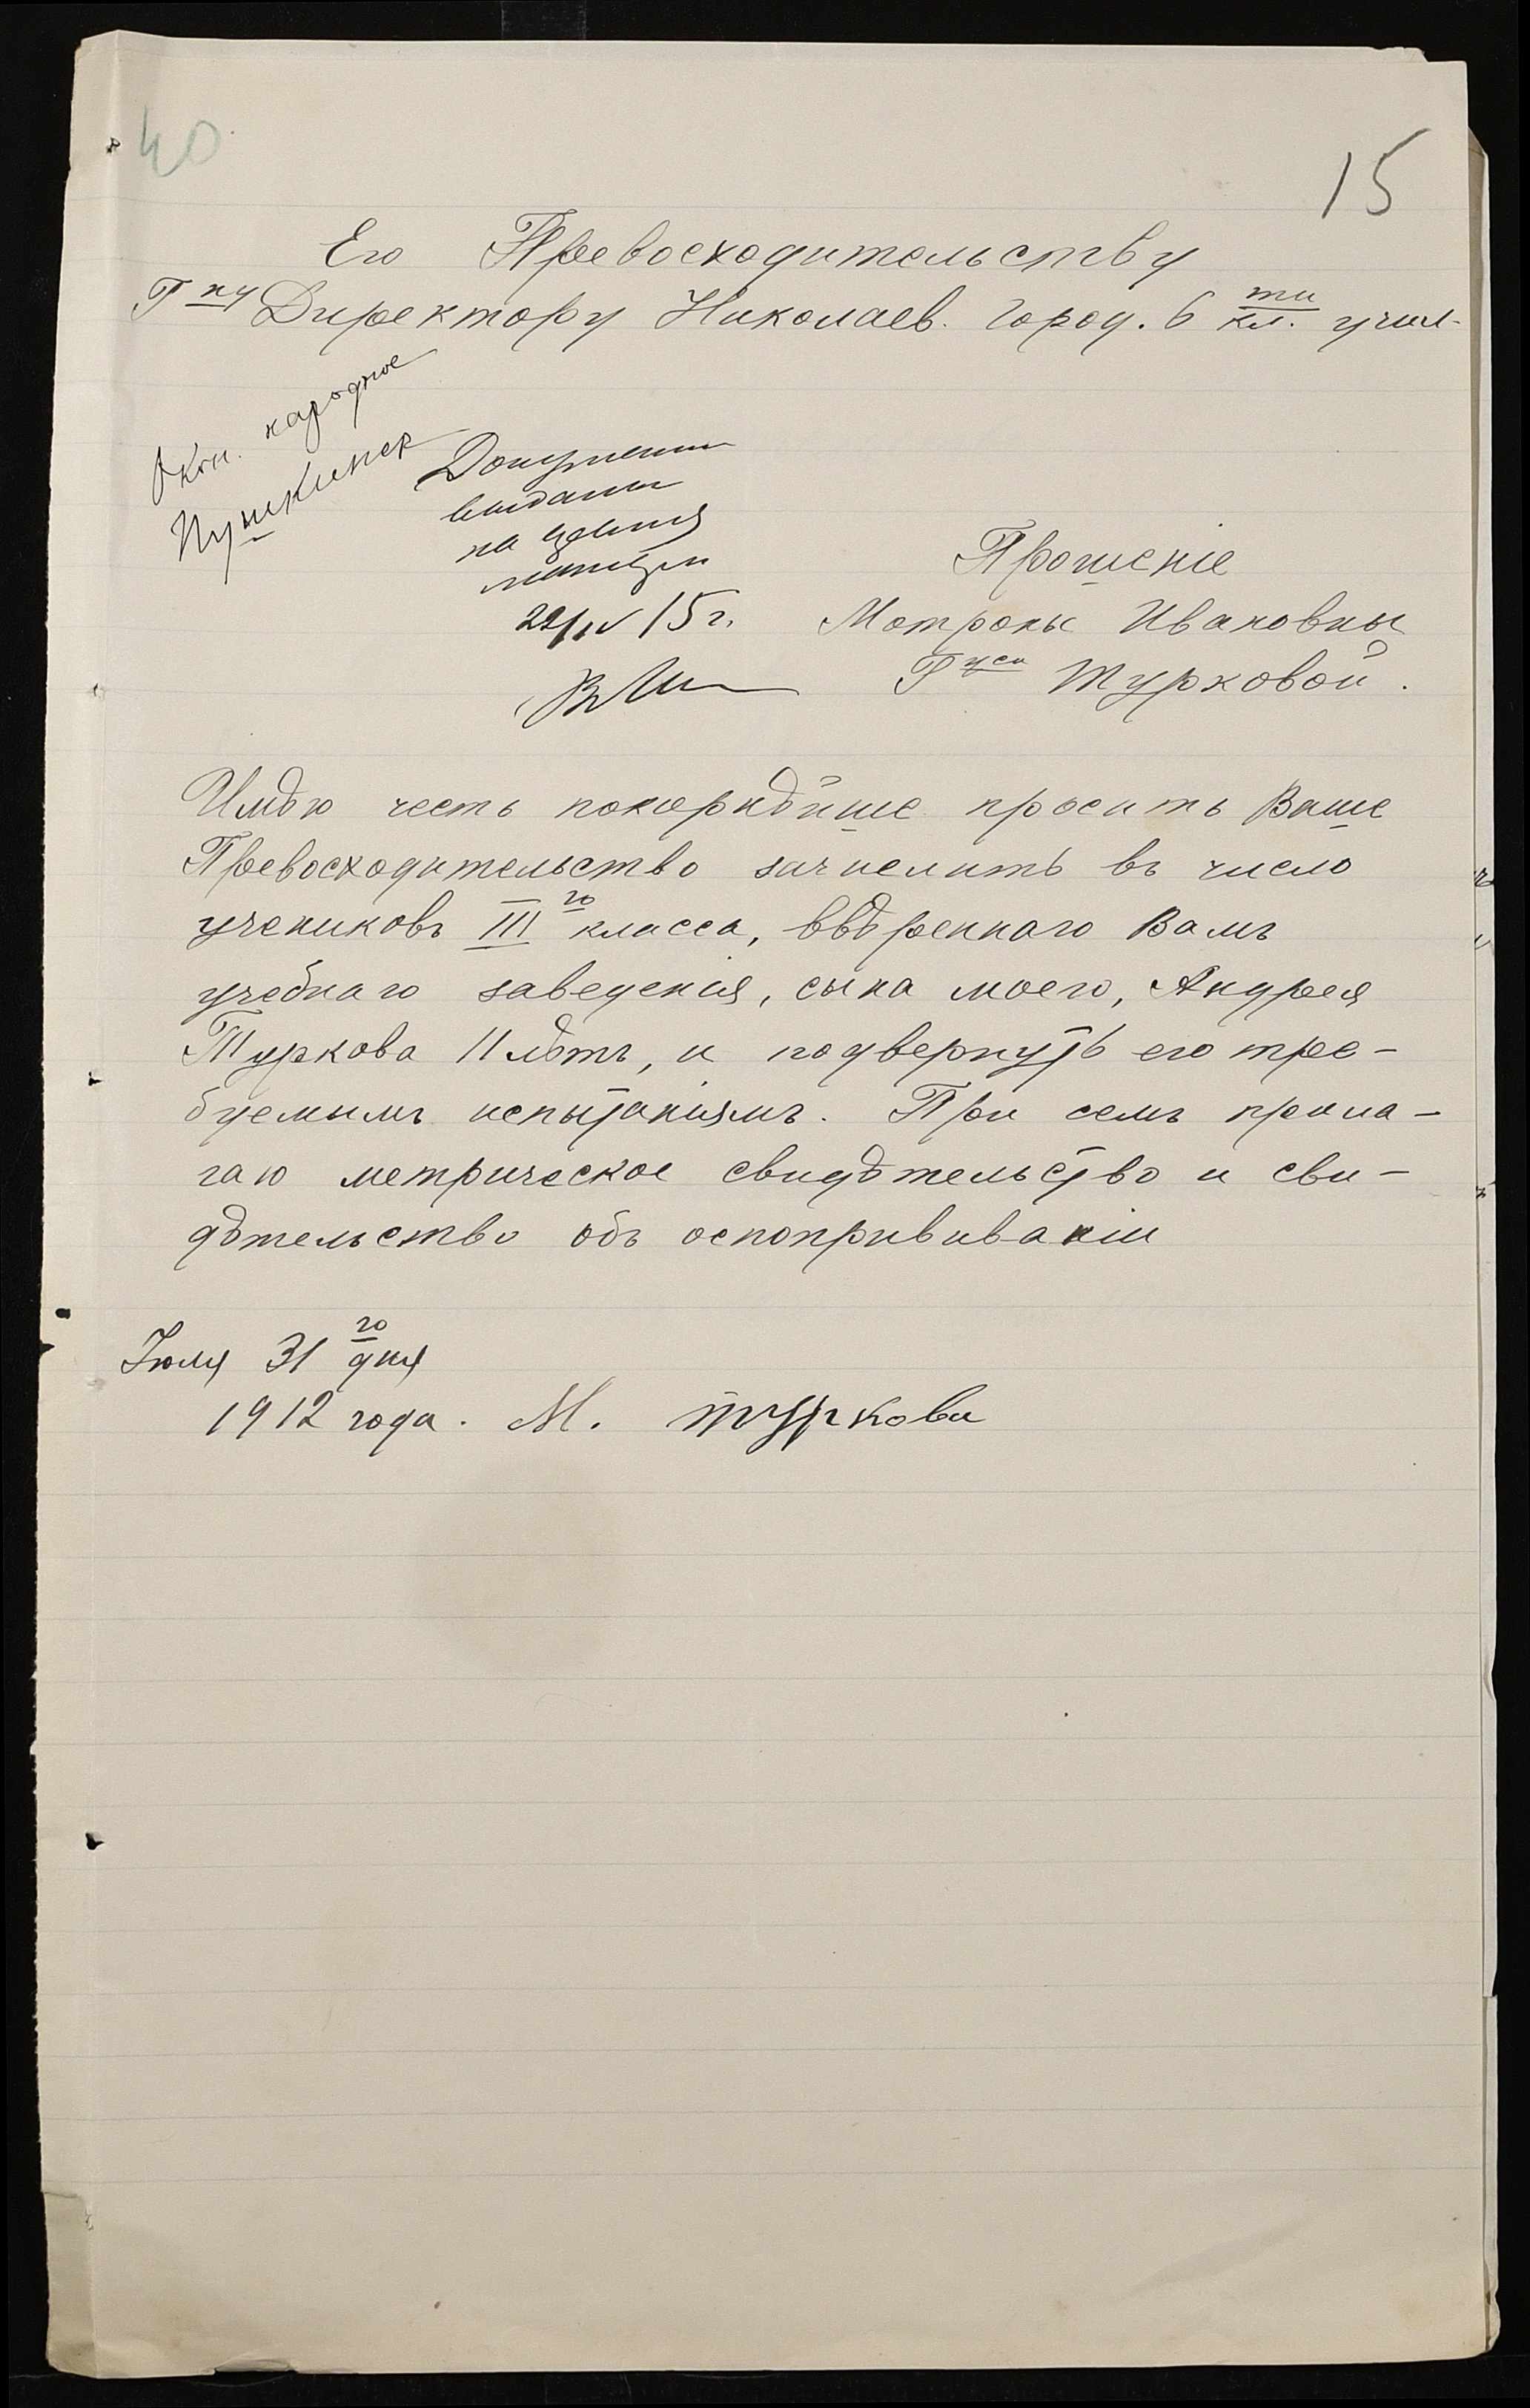 40
15
Его Превосходительству
Гну Директору Николаев. город. 6 ти кл. учил-
Окон. народное
Пушкинск
Документы
выданы
на
22/IV 15 г.
Прошеніе
Мотроны Ивановны
Гжи Турковой.
Имѣю честь покорнѣйше просить Ваше
Превосходительство зачислить въ число
учениковъ III го класса, ввѣреннаго Вамъ
учебнаго заведенія, сына моего, Андрея
Туркова 11 лѣтъ, и подвергнуть его тре-
буемымъ испытаніямъ. При семъ прила-
гаю метрическое свидѣтельство и сви-
дѣтельство объ оспопрививаніи
Іюля 31 го дня
1912 года. М. Туркова